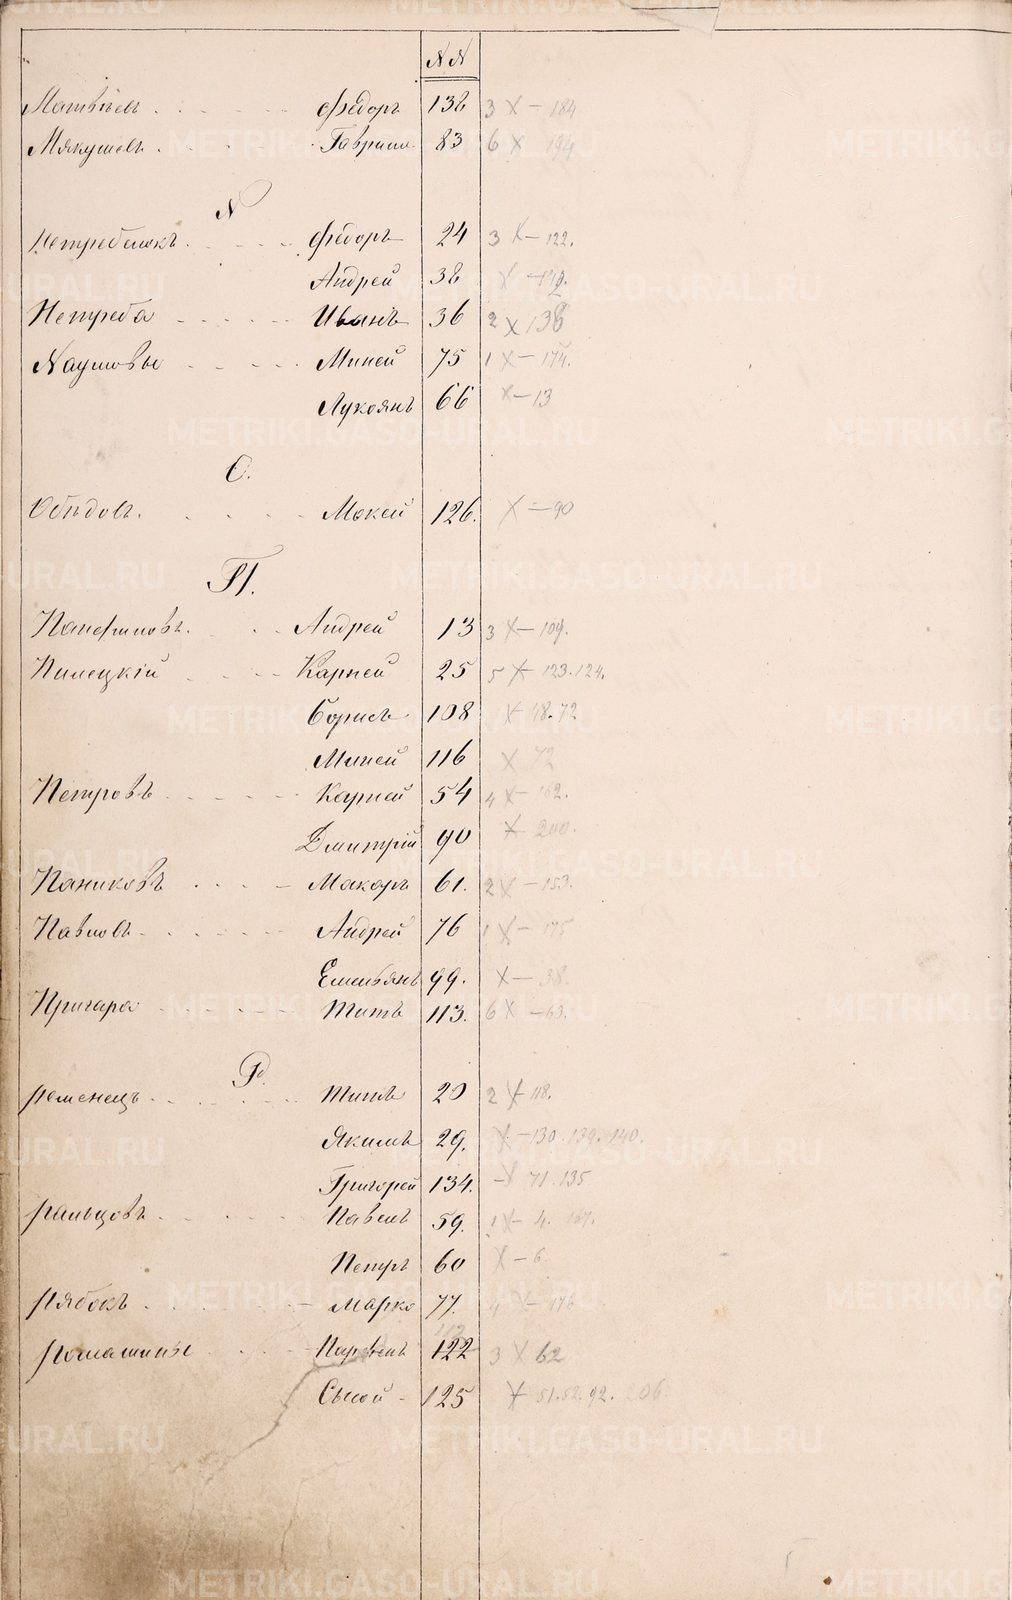 NN
Матвѣевъ . . . . Ѳедоръ 138 3 X – 184
Мякушевъ . . . . Гаврiилъ 83 6 X 194
N
Нетребенокъ . . . . Ѳедоръ 24 3 X – 122.
Андрей 38 X
Нетреба . . . . Иванъ 36 2 X 138
Наумовы . . . . Миней 75 1 X – 174.
Лукоянъ 66 X – 13
О.
Обѣдовъ. . . . . Мокей 126. X – 90
П.
Панефиловъ. . . . Андрей 13 3 X – 109.
Пилецкій . . . . Карпей 25 5 X 123.124.
Борисъ 108 X 48.72
Миней 116 X 72
Петровъ . . . . Карпей 54 4 X – 162.
Дмитрій 90 X 200.
Паниковъ . . . . Макаръ 61. 2 X – 153.
Павловъ . . . . Андрей 76 1 X – 175
Емельянъ 99. X – 38.
Пригара . . . . Титъ 113. 6 X – 63.
Р.
Ременецъ . . . . Титъ 20 2 X – 118.
Якимъ 29. X – 130.139.140.
Григорей 134. – X 71.135
Ральцовъ . . . . Павелъ 59. 1 X – 4. 167.
Петръ 60 X – 6.
Рябокъ . . . . Марко 77. 4 X – 176
Ромашины . . . . Парѳенъ 122 3 X 62
Сысой – 125 X 51.52.92. 206.
METRIKI.GASO-URAL.RU